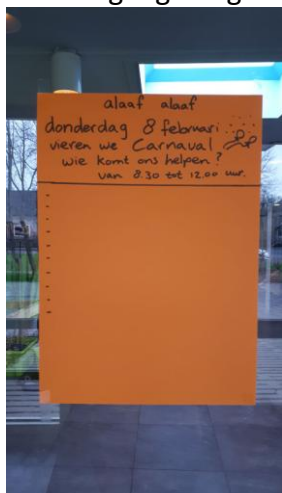 alaaf alaaf
donderdag 8 februari
vieren we Carnaval
wie komt ons helpen?
van 8.30 tot 12.00 uur.
-
-
-
-
-
-
-
-
-
-
-